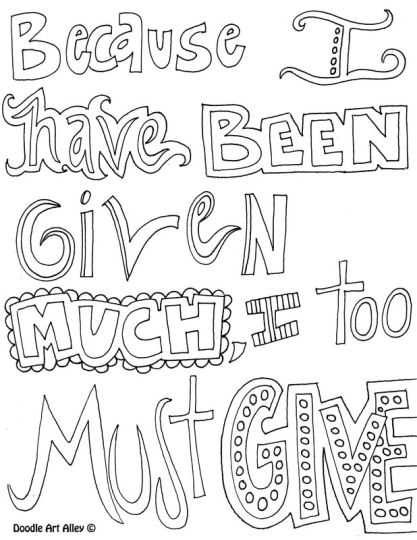 Because I
have BEEN
GiVeN
MUCH, I too
Must GIVE
Doodle Art Alley ©